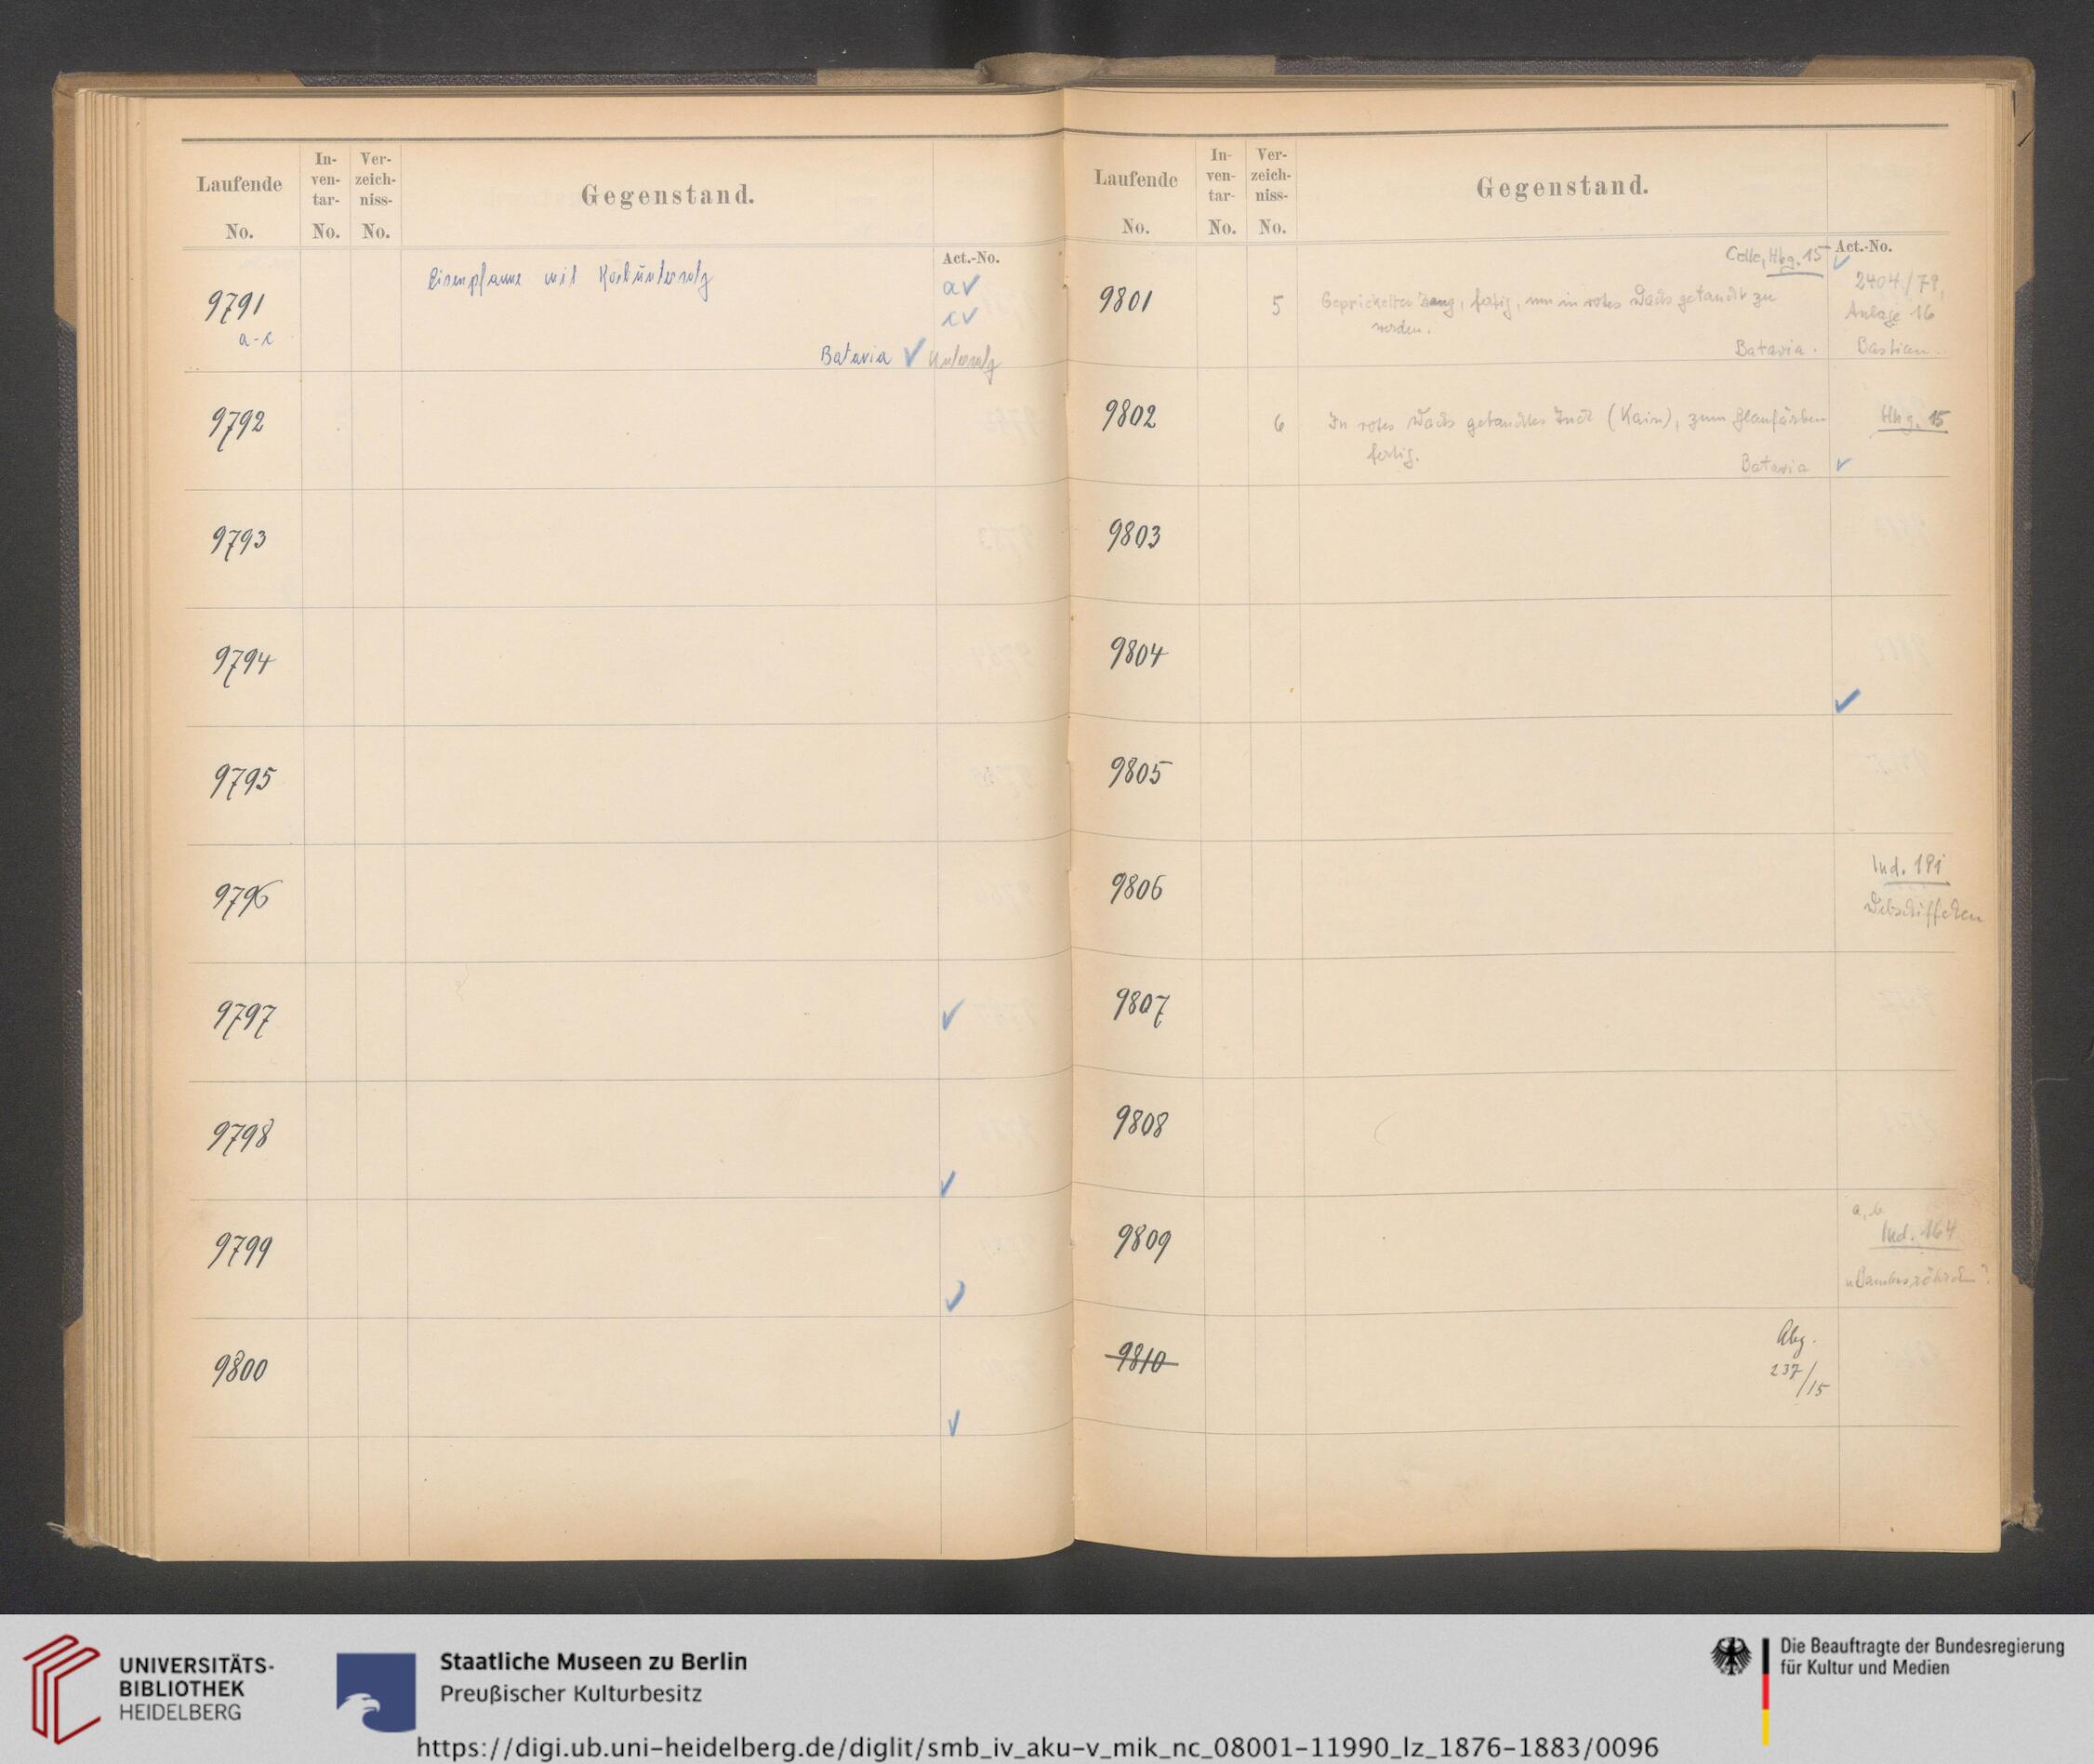 Laufende No.
In-ven-tar-No.
Ver-zeich-niss-No.
Gegenstand.
Act.-No.
9791
a-c
Eisenpfanne mit
a ✓
c ✓
Batavia ✓ Untersatz
9792
9793
9794
9795
9796
9797 ✓
9798 ✓
9799 ✓
9800 ✓
Laufende No.
In-ven-tar-No.
Ver-zeich-niss-No.
Gegenstand.
Act.-No.
Hbg. 15 ✓
9801
5
Geprickeltes Zeug, fertig, um in rotes Wachs getaucht zu
werden.
Batavia.
2404/79,
Anlage 16
Bastian.
9802
6
In rotes Wachs getauchtes Tuch (Kain), zum Blaufärben
fertig.
Batavia ✓
Hbg. 15
9803
9804 ✓
9805
9806
Ind. 191
Webschiffchen
9807
9808
9809
a, b
Ind. 164
9810
Abg.
237/15
UNIVERSITÄTS-
BIBLIOTHEK
HEIDELBERG
Staatliche Museen zu Berlin
Preußischer Kulturbesitz
Die Beauftragte der Bundesregierung
für Kultur und Medien
https://digi.ub.uni-heidelberg.de/diglit/smb_iv_aku-v_mik_nc_08001-11990_lz_1876-1883/0096